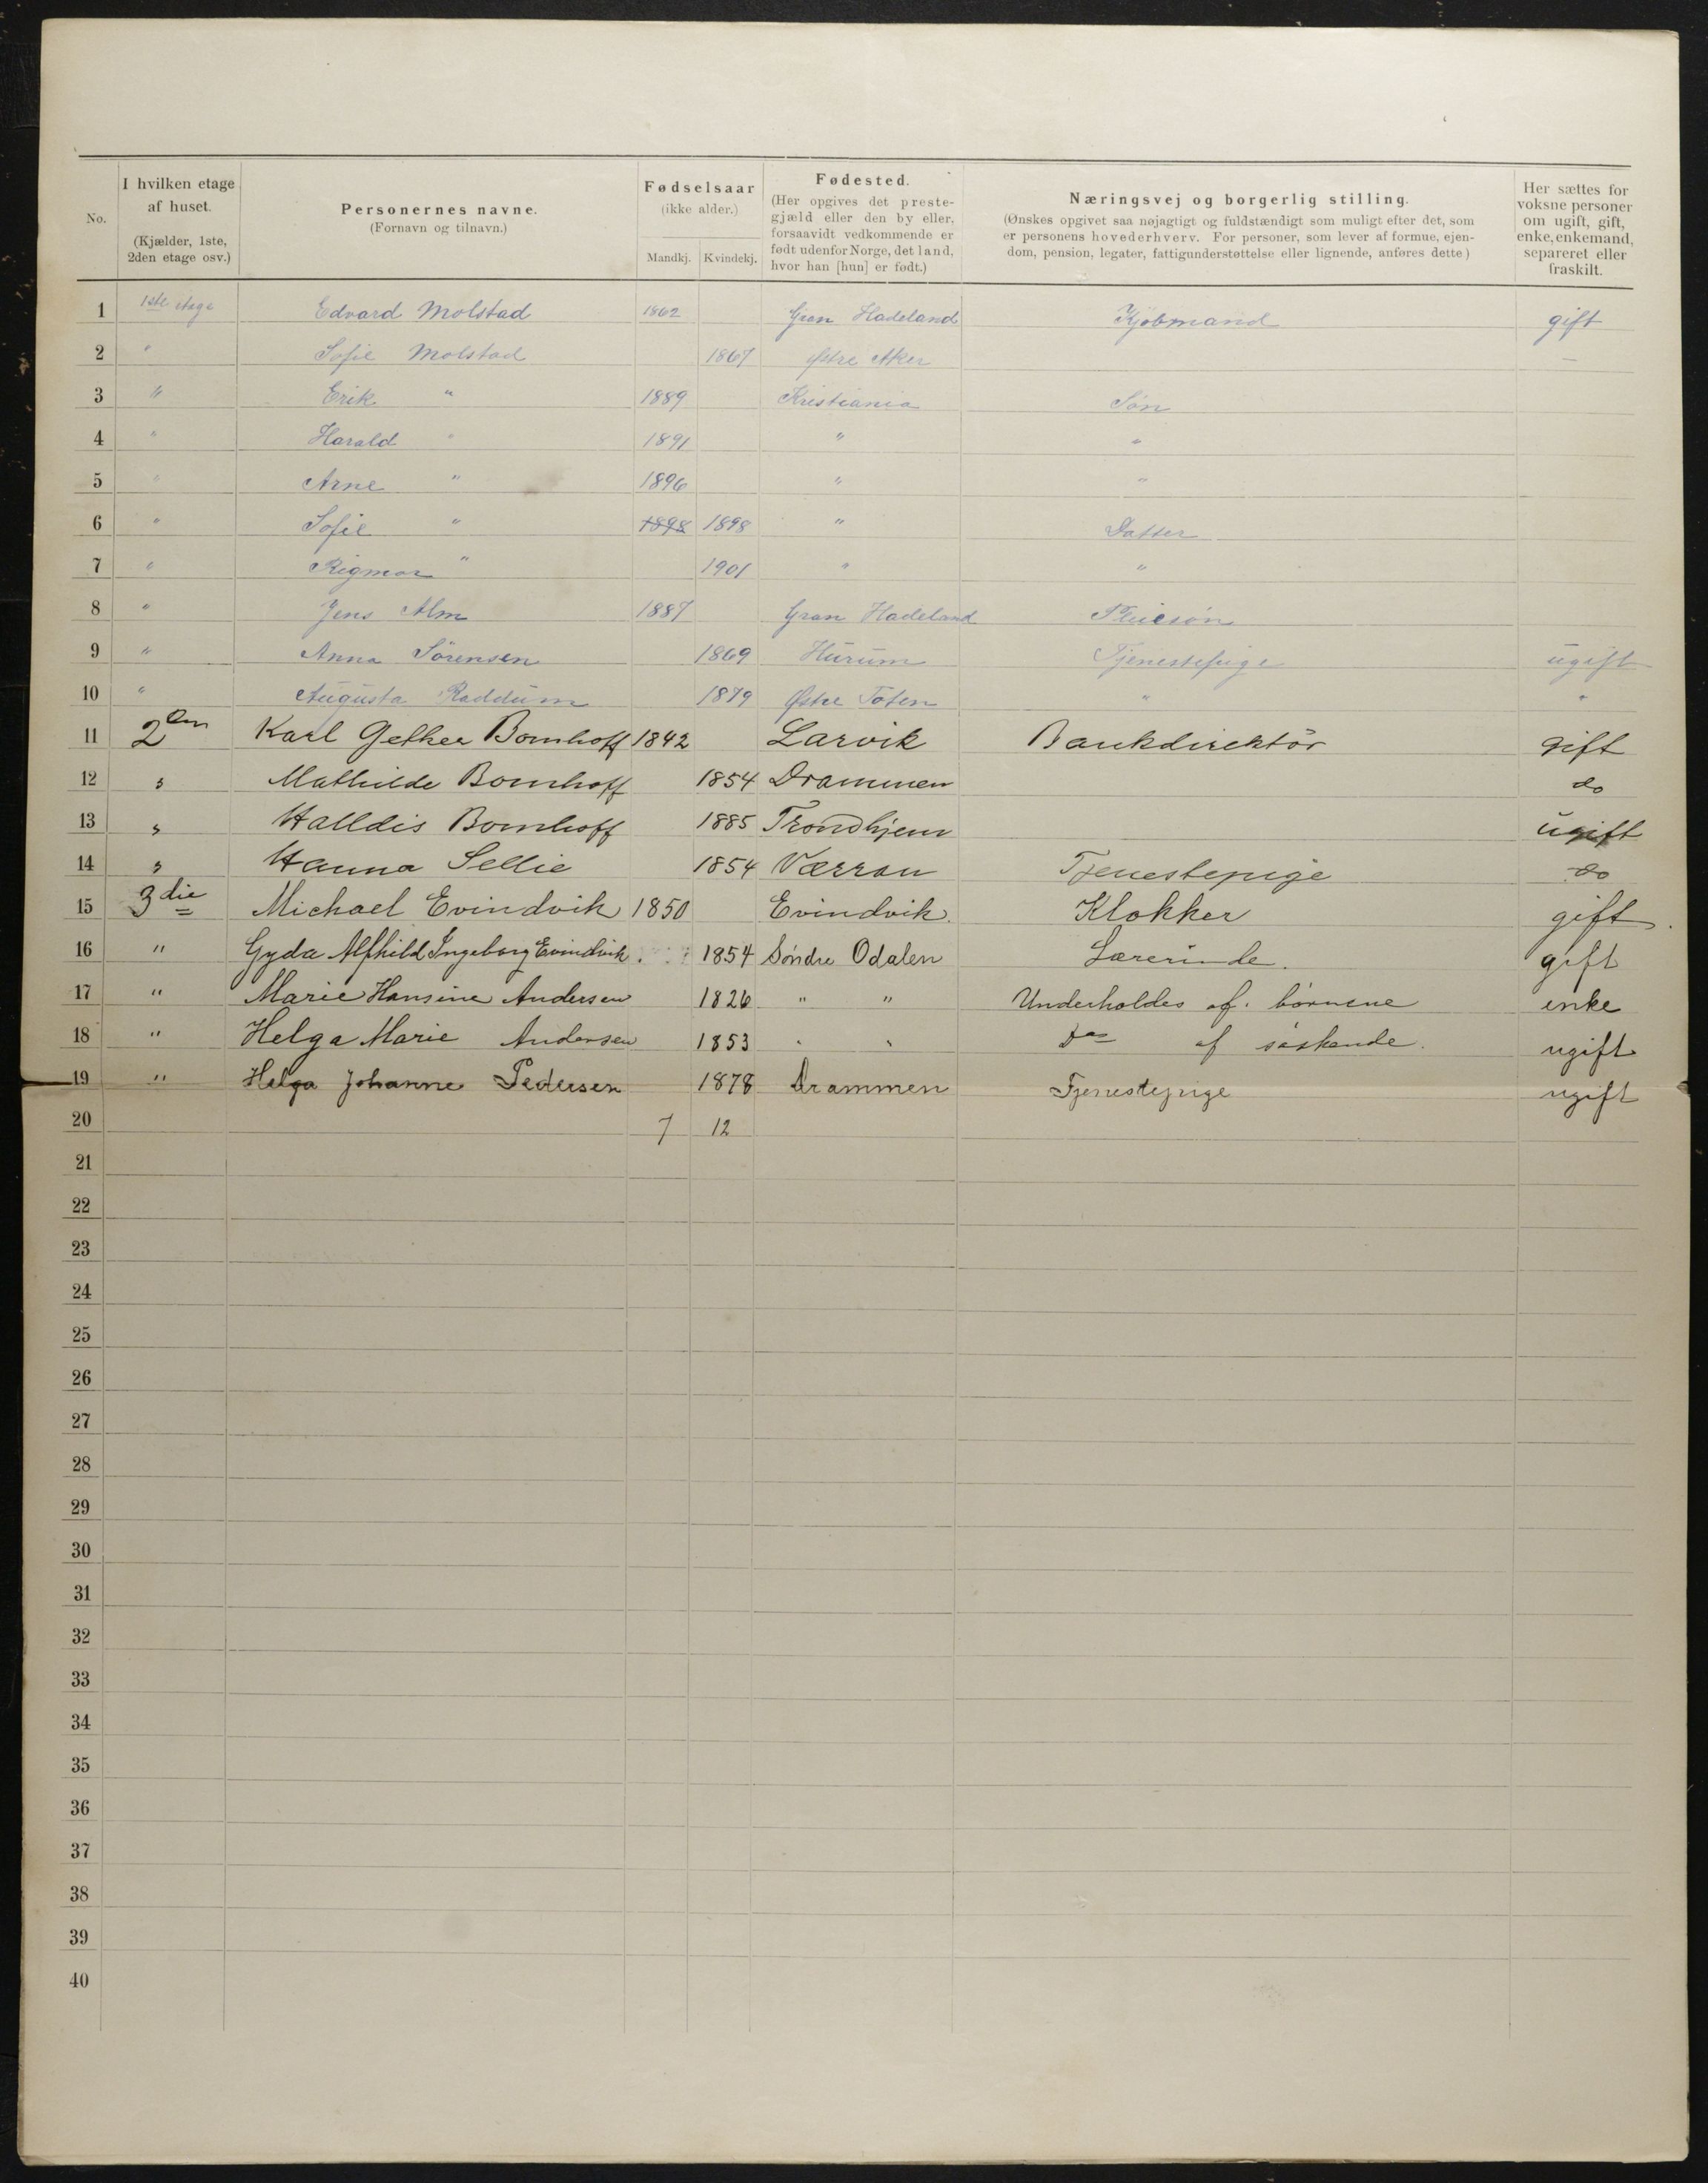 No. | I hvilken etage af huset. (Kjælder, 1ste, 2den etage osv.) | Personernes navne. (Fornavn og tilnavn.) | Fødselsaar (ikke alder.) Mandkj. | Kvindekj. | Fødested. (Her opgives det prestegjæld eller den by eller, forsaavidt vedkommende er født udenfor Norge, det land, hvor han [hun] er født.) | Næringsvej og borgerlig stilling. (Ønskes opgivet saa nøjagtigt og fuldstændigt som muligt efter det, som er personens hovederhverv. For personer, som lever af formue, ejendom, pension, legater, fattigunderstøttelse eller lignende, anføres dette) | Her sættes for voksne personer om ugift, gift, enke, enkemand, separeret eller fraskilt.
1 1ste etage Edvard Molstad 1862 Gran Hadeland Kjøbmand gift
2 " Sofie Molstad 1867 Østre Aker —
3 " Erik " 1889 Kristiania Søn
4 " Harald " 1891 " "
5 " Arne " 1896 " "
6 " Sofie " 1898 1898 " Datter
7 " Rigmor " 1901 " "
8 " Jens Alm 1887 Gran Hadeland Pleiesøn
9 " Anna Sörensen 1869 Hurum Tjenestepige ugift
10 " Augusta Raddum 1879 Østre Toten " "
11 2den Karl Gether Bomhoff 1842 Larvik Bankdirektör gift
12 " Mathilde Bomhoff 1854 Drammen do
13 " Halldis Bomhoff 1885 Trondhjem ugift
14 " Hanna Sellie 1854 Værran Tjenestepige do
15 3die Michael Evindvik 1850 Evindvik. Klokker gift.
16 " Gyda Alfhild Ingeborg Evindvik. 1854 Søndre Odalen Lærerinde. gift
17 " Marie Hansine Andersen 1826 " " Underholdes af børnene enke
18 " Helga Marie Andersen 1853 " " Do af søskende. ugift
19 " Helga Johanne Pedersen 1878 Drammen Tjenestepige ugift
20 7 12
21
22
23
24
25
26
27
28
29
30
31
32
33
34
35
36
37
38
39
40